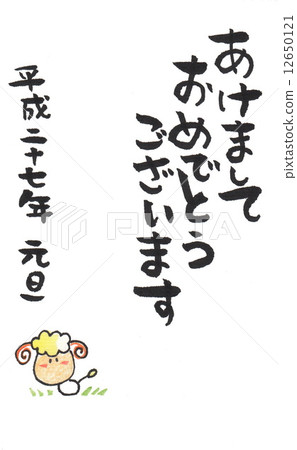 あけまして
おめでとう
ございます
平成二十七年 元旦
PIXTA
12650121